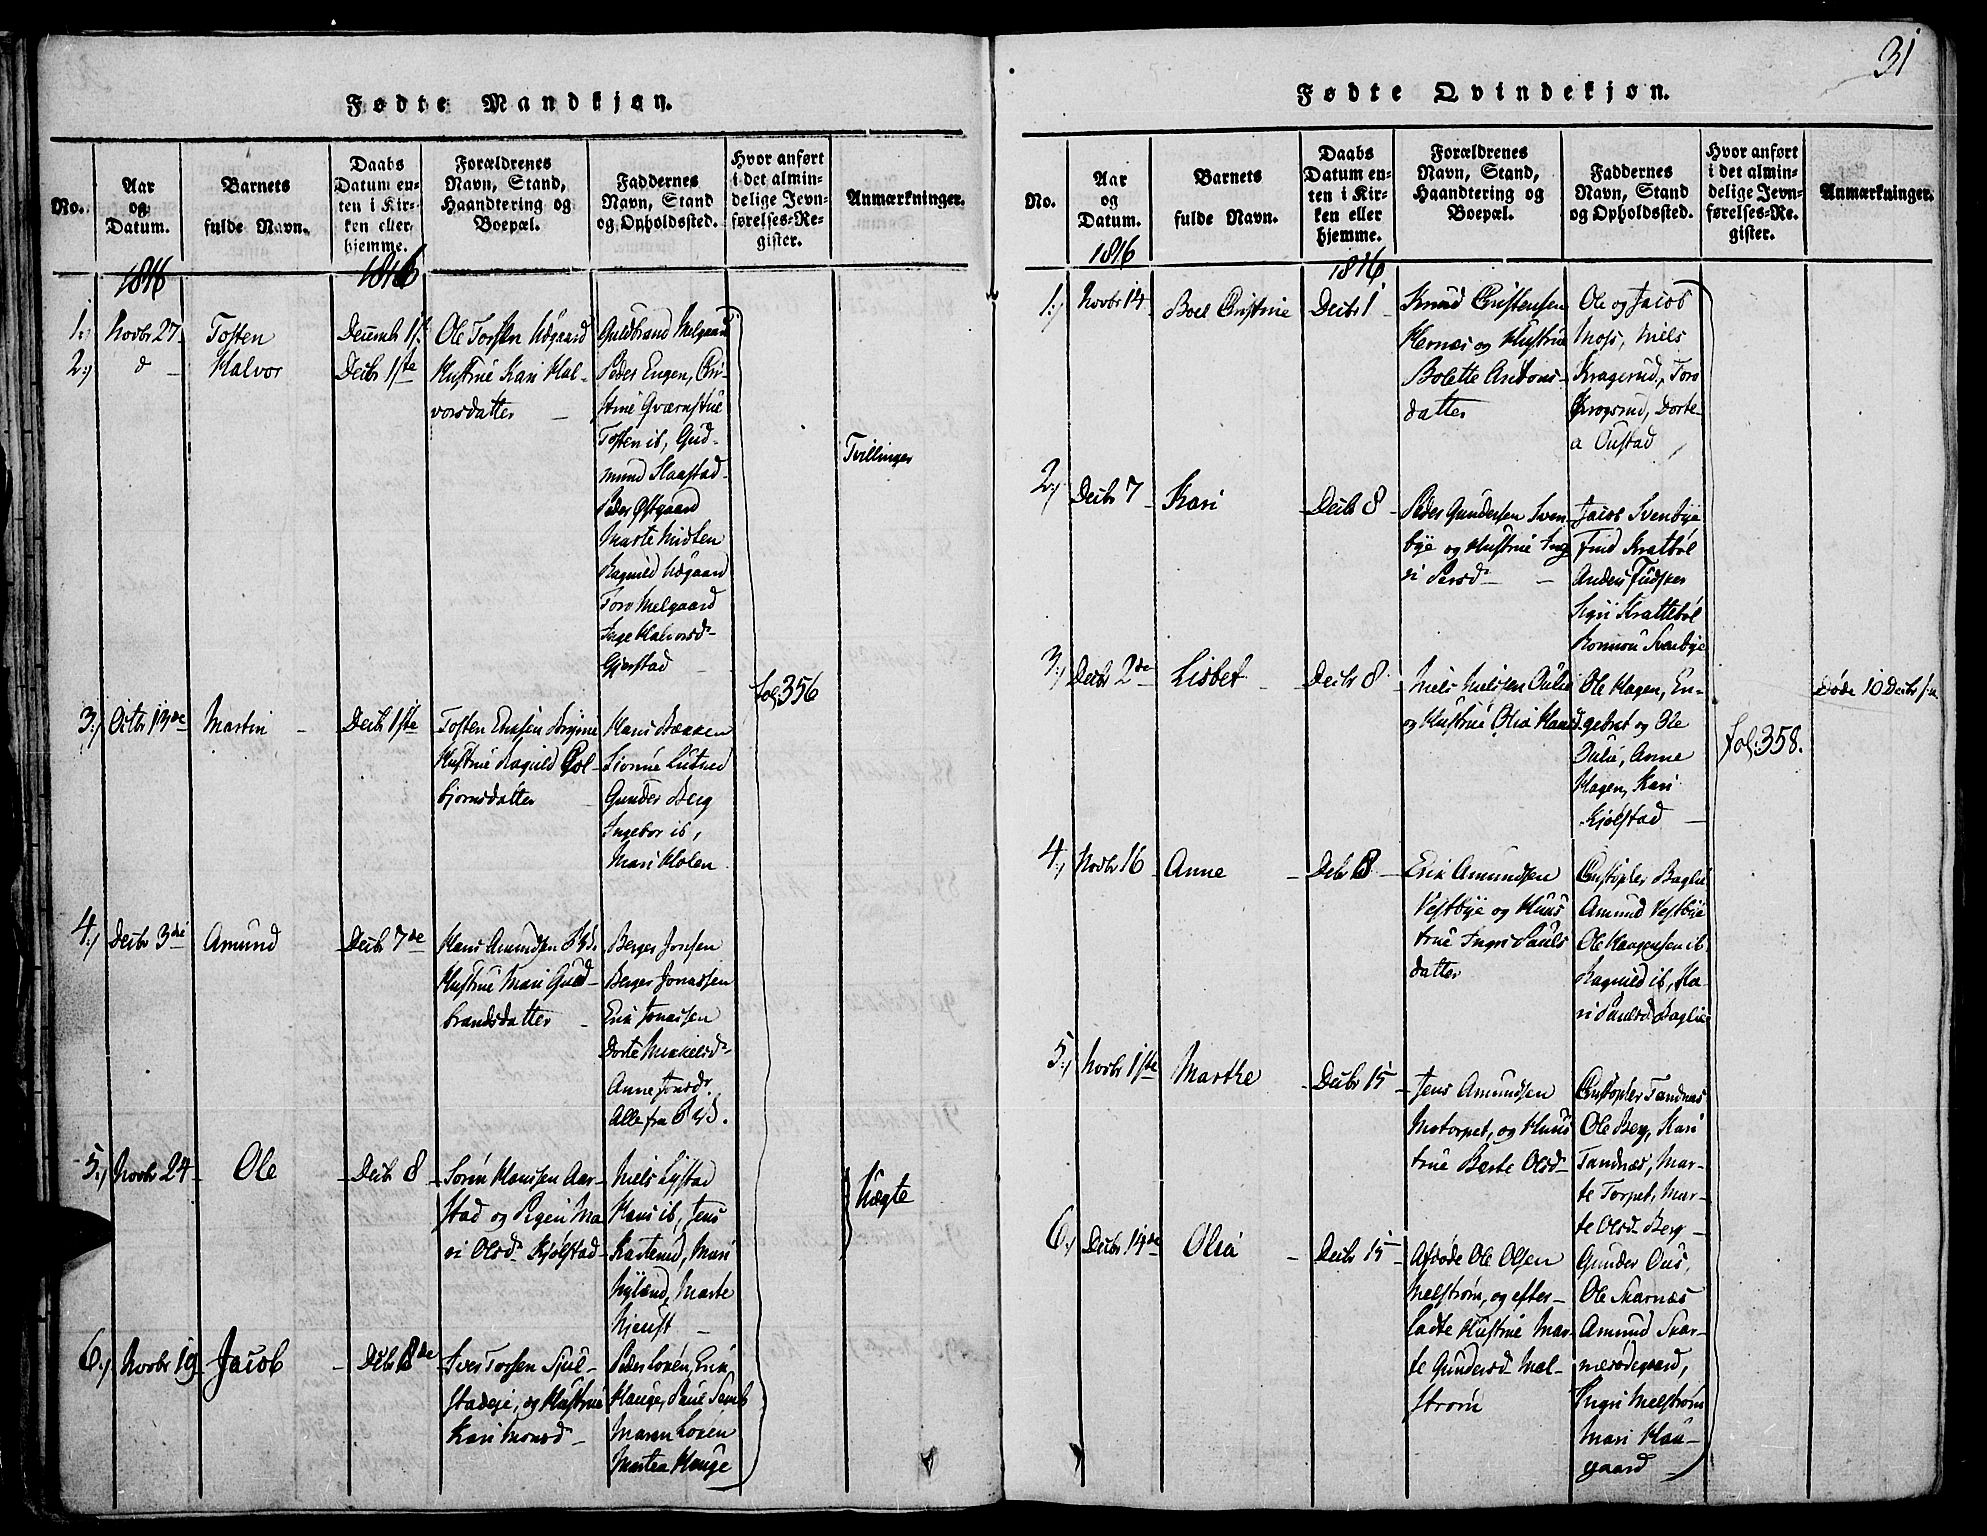 Fødte Mandkjøn.
No.
Aar
og
Datum.
Barnets
fulde Navn.
Daabs
Datum en-
ten i Kir-
ken eller
hjemme.
Forældrenes
Navn, Stand,
Haandtering og
Boepæl.
Faddernes
Navn, Stand
og Opholdssted.
Hvor anført
i det almin-
delige Jevn-
førelses-Re-
gister.
Anmærkninger.
1816
1816
1.) Novbr 27
Tosten
Decemb 1ste
Ole Torsten
Guldbrand Melgaard
2.) d
Halvor
Decbr 1ste
Hustrue Kari Hal-
vorsdatter
Peder Engen, Chri-
stine Qværnstue
Tosten ib, Gud-
mund Slaastad
Peder Østgaard
Marte
Ragnild
Toro Melgaard
Inge Halvorsd
Gjerstad
Tvillinger
fol: 356
3.) Octbr 13de
Martin
Decbr 1ste
Tosten
Hustrue Ragnild Col-
bjørnsdatter
Hans Bakken
Gunder Berg
Ingebor ib,
Mari Holen
4.) Decbr 3die
Amund
Decbr 7de
Hans Amundsen
Hustrue Mari Guld-
brandsdatter
Berger Jonsen
Berger Jonassen
Erik Jonassen
Dorte Mikkelsd
Anne Jonsdr
Alle fra
5.) Novbr 24
Ole
Decbr 8
Søren Hansen Aar-
stad og Pigen Ma-
ri Olsd Kjølstad
Niels Lystad
Hans ib, Jens
Kasterud, Mari
Nyland, Marte
Uægte
6.) Novbr 19
Jacob
Debr 8de
Iver Torsen Sjul-
stadeje, og Hustrue
Kari Monsd
Peder Loven, Erik
Hauge, Paul
Maren Loven
Martea Hauge
31
Fødte Qvindekjøn.
No.
Aar
og
Datum.
Barnets
fulde Navn.
Daabs
Datum en-
ten i Kir-
ken eller
hjemme.
Forældrenes
Navn, Stand,
Haandtering og
Boepæl.
Faddernes
Navn, Stand
og Opholdssted.
Hvor anført
i det almin-
delige Jevn-
førelses-Re-
gister.
Anmærkninger.
1816
1816
1.) Novbr 14
Boel Christine
Decbr 1
Knud Christensen
Hernæs og Hustrue
Bolette Antons-
datter
Ole og Jacob
Moss, Niels
Kragerud, Toro
Krogsrud, Dorte-
a Oustad
2.) Decbr 7
Kari
Decbr 8
Peder Gundersen Sven-
bye og Hustrue Ing-
ri Persd
Jacob Svenbye
Find Kratbøl
Anders
Sigri Krattebøl
Svenbye
3.) Decbr 2de
Lisbet
Decbr 8
Niels Nielsen Oulie
og Hustrue Olia Hansd
Ole Hagen, En-
gebret og Ole
Oulie, Anne
Hagen, Kari
Kjølstad
fol: 358.
Døde 10 Decbr
4.) Novbr 16
Anne
Debr 8
Erik Amundsen
Vestbye og Huus-
true Ingri Pauls-
datter
Christopher Baglie
Amund Vestbye
Ole Haagensen ib
Ragnild ib, Ka-
ri Paulsd Baglie
5.) Novbr 1ste
Marthe
Decbr 15
Jens Amundsen
Motorpet, og Huus-
true Berte Olsd
Christopher Tandnæs
Ole Berg, Kari
Tandnæs, Mar-
te Torpet, Mar-
te Olsd Berg
6.) Decbr 14de
Olia
Decbr 15
Afdøde Ole Olsen
Melstrøm, og efter-
ladte Hustrue Mar-
te Gundersd Mel-
strøm
Gunder Ous,
Ole Skarnæs
Amund Skar-
næsødegaard,
Ingri Melstrøm
Mari Hau-
gaard